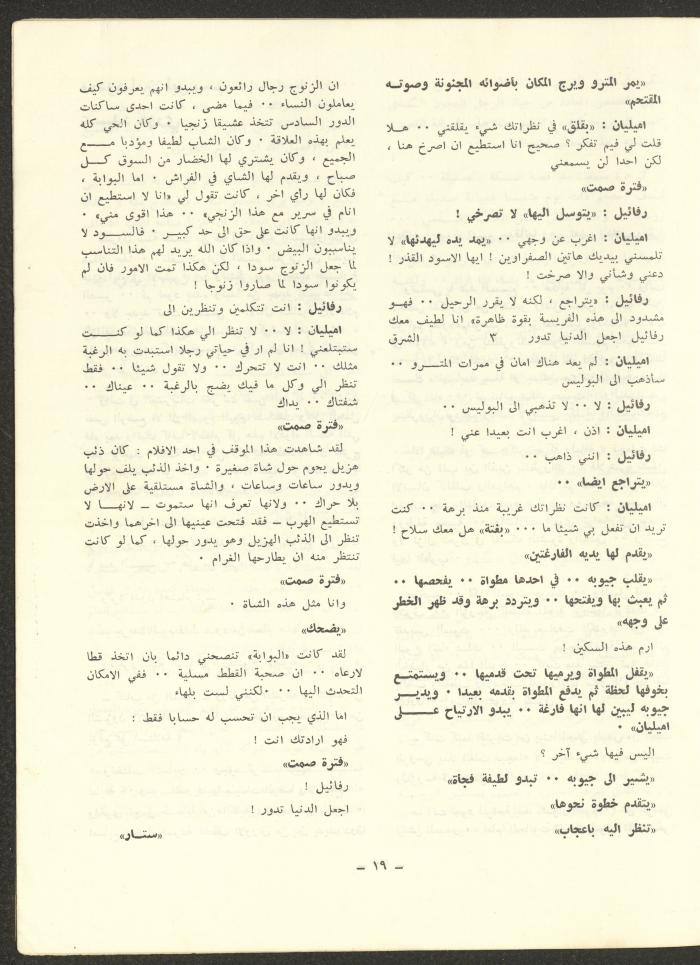 «يمر المترو ويرج المكان بأضوائه المجنونة وصوته
المقتحم»
اميليان : «بقلق» في نظراتك شيء يقلقني ٠٠ هلا
قلت لي فيم تفكر ؟ صحيح انا استطيع ان اصرخ هنا ،
لكن احدا لن يسمعني
«فترة صمت»
رفائيل : «يتوسل اليها» لا تصرخي !
اميليان : اغرب عن وجهي ٠٠ «يمد يده ليهدئها» لا
تلمسني بيديك هاتين الصفراوين ! ايها الاسود القذر !
دعني وشأني والا صرخت !
رفائيل : «يتراجع ، لكنه لا يقرر الرحيل ٠٠ فهو
مشدود الى هذه الفريسة بقوة ظاهرة» انا لطيف معك
رفائيل اجعل الدنيا تدور ٣ الشرق
اميليان : لم يعد هناك امان في ممرات المترو ٠٠
سأذهب الى البوليس
رفائيل : لا ٠٠ لا تذهبي الى البوليس ٠٠
اميليان : اذن ، اغرب انت بعيدا عني !
رفائيل : انني ذاهب ٠٠
«يتراجع ايضا» ٠٠
اميليان : كانت نظراتك غريبة منذ برهة ٠٠ كنت
تريد ان تفعل بي شيئا ما ٠٠٠ «بغتة» هل معك سلاح !
«يقدم لها يديه الفارغتين»
«يقلب جيوبه ٠٠ في احدها مطواة ٠٠ يفحصها ٠٠
ثم يعبث بها ويفتحها ٠٠ ويتردد برهة وقد ظهر الخطر
على وجهه»
ارم هذه السكين !
«يقفل المطواة ويرميها تحت قدميها ٠٠ ويستمتع
بخوفها لحظة ثم يدفع المطواة بقدمه بعيدا ٠ ويدير
جيوبه ليبين لها انها فارغة ٠٠ يبدو الارتياح على
اميليان» ٠
اليس فيها شيء آخر ؟
«يشير الى جيوبه ٠٠ تبدو لطيفة فجأة»
«يتقدم خطوة نحوها»
«تنظر اليه باعجاب»
ان الزنوج رجال رائعون ، ويبدو انهم يعرفون كيف
يعاملون النساء ٠٠ فيما مضى ، كانت احدى ساكنات
الدور السادس تتخذ عشيقا زنجيا ٠ وكان الحي كله
يعلم بهذه العلاقة ٠ وكان الشاب لطيفا ومؤدبا مع
الجميع ، وكان يشتري لها الخضار من السوق كل
صباح ، ويقدم لها الشاي في الفراش ٠ اما البوابة ،
فكان لها رأي اخر ، كانت تقول لي «انا لا استطيع ان
انام في سرير مع هذا الزنجي» ٠٠ هذا اقوى مني» ٠
ويبدو انها كانت على حق الى حد كبير ٠ فالسود لا
يناسبون البيض ٠ واذا كان الله يريد لهم هذا التناسب
لما جعل الزنوج سودا ، لكن هكذا تمت الامور فان لم
يكونوا سودا لما صاروا زنوجا !
رفائيل : انت تتكلمين وتنظرين الى
اميليان : لا ٠٠ لا تنظر الي هكذا كما لو كنت
ستبتلعني ! انا لم ار في حياتي رجلا استبدت به الرغبة
مثلك ٠٠ انت لا تتحرك ٠٠ ولا تقول شيئا ٠٠ فقط
تنظر الي وكل ما فيك يضج بالرغبة ٠٠ عيناك ٠٠
شفتاك ٠٠ يداك
«فترة صمت»
لقد شاهدت هذا الموقف في احد الافلام : كان ذئب
هزيل يحوم حول شاة صغيرة ٠ واخذ الذئب يلف حولها
ويدور ساعات وساعات ، والشاة مستلقية على الارض
بلا حراك ٠٠ ولانها تعرف انها ستموت ــ لانها لا
تستطيع الهرب ــ فقد فتحت عينيها الى اخرهما واخذت
تنظر الى الذئب الهزيل وهو يدور حولها ، كما لو كانت
تنتظر منه ان يطارحها الغرام ٠
«فترة صمت»
وانا مثل هذه الشاة ٠
«يضحك»
لقد كانت «البوابة» تنصحني دائما بان اتخذ قطا
لارعاه ٠٠ ان صحبة القطط مسلية ٠٠ ففي الامكان
التحدث اليها ٠٠ ٠لكنني لست بلهاء
اما الذي يجب ان تحسب له حسابا فقط :
فهو ارادتك انت !
«فترة صمت»
رفائيل !
اجعل الدنيا تدور !
«ستار»
ــ ١٩ ــ